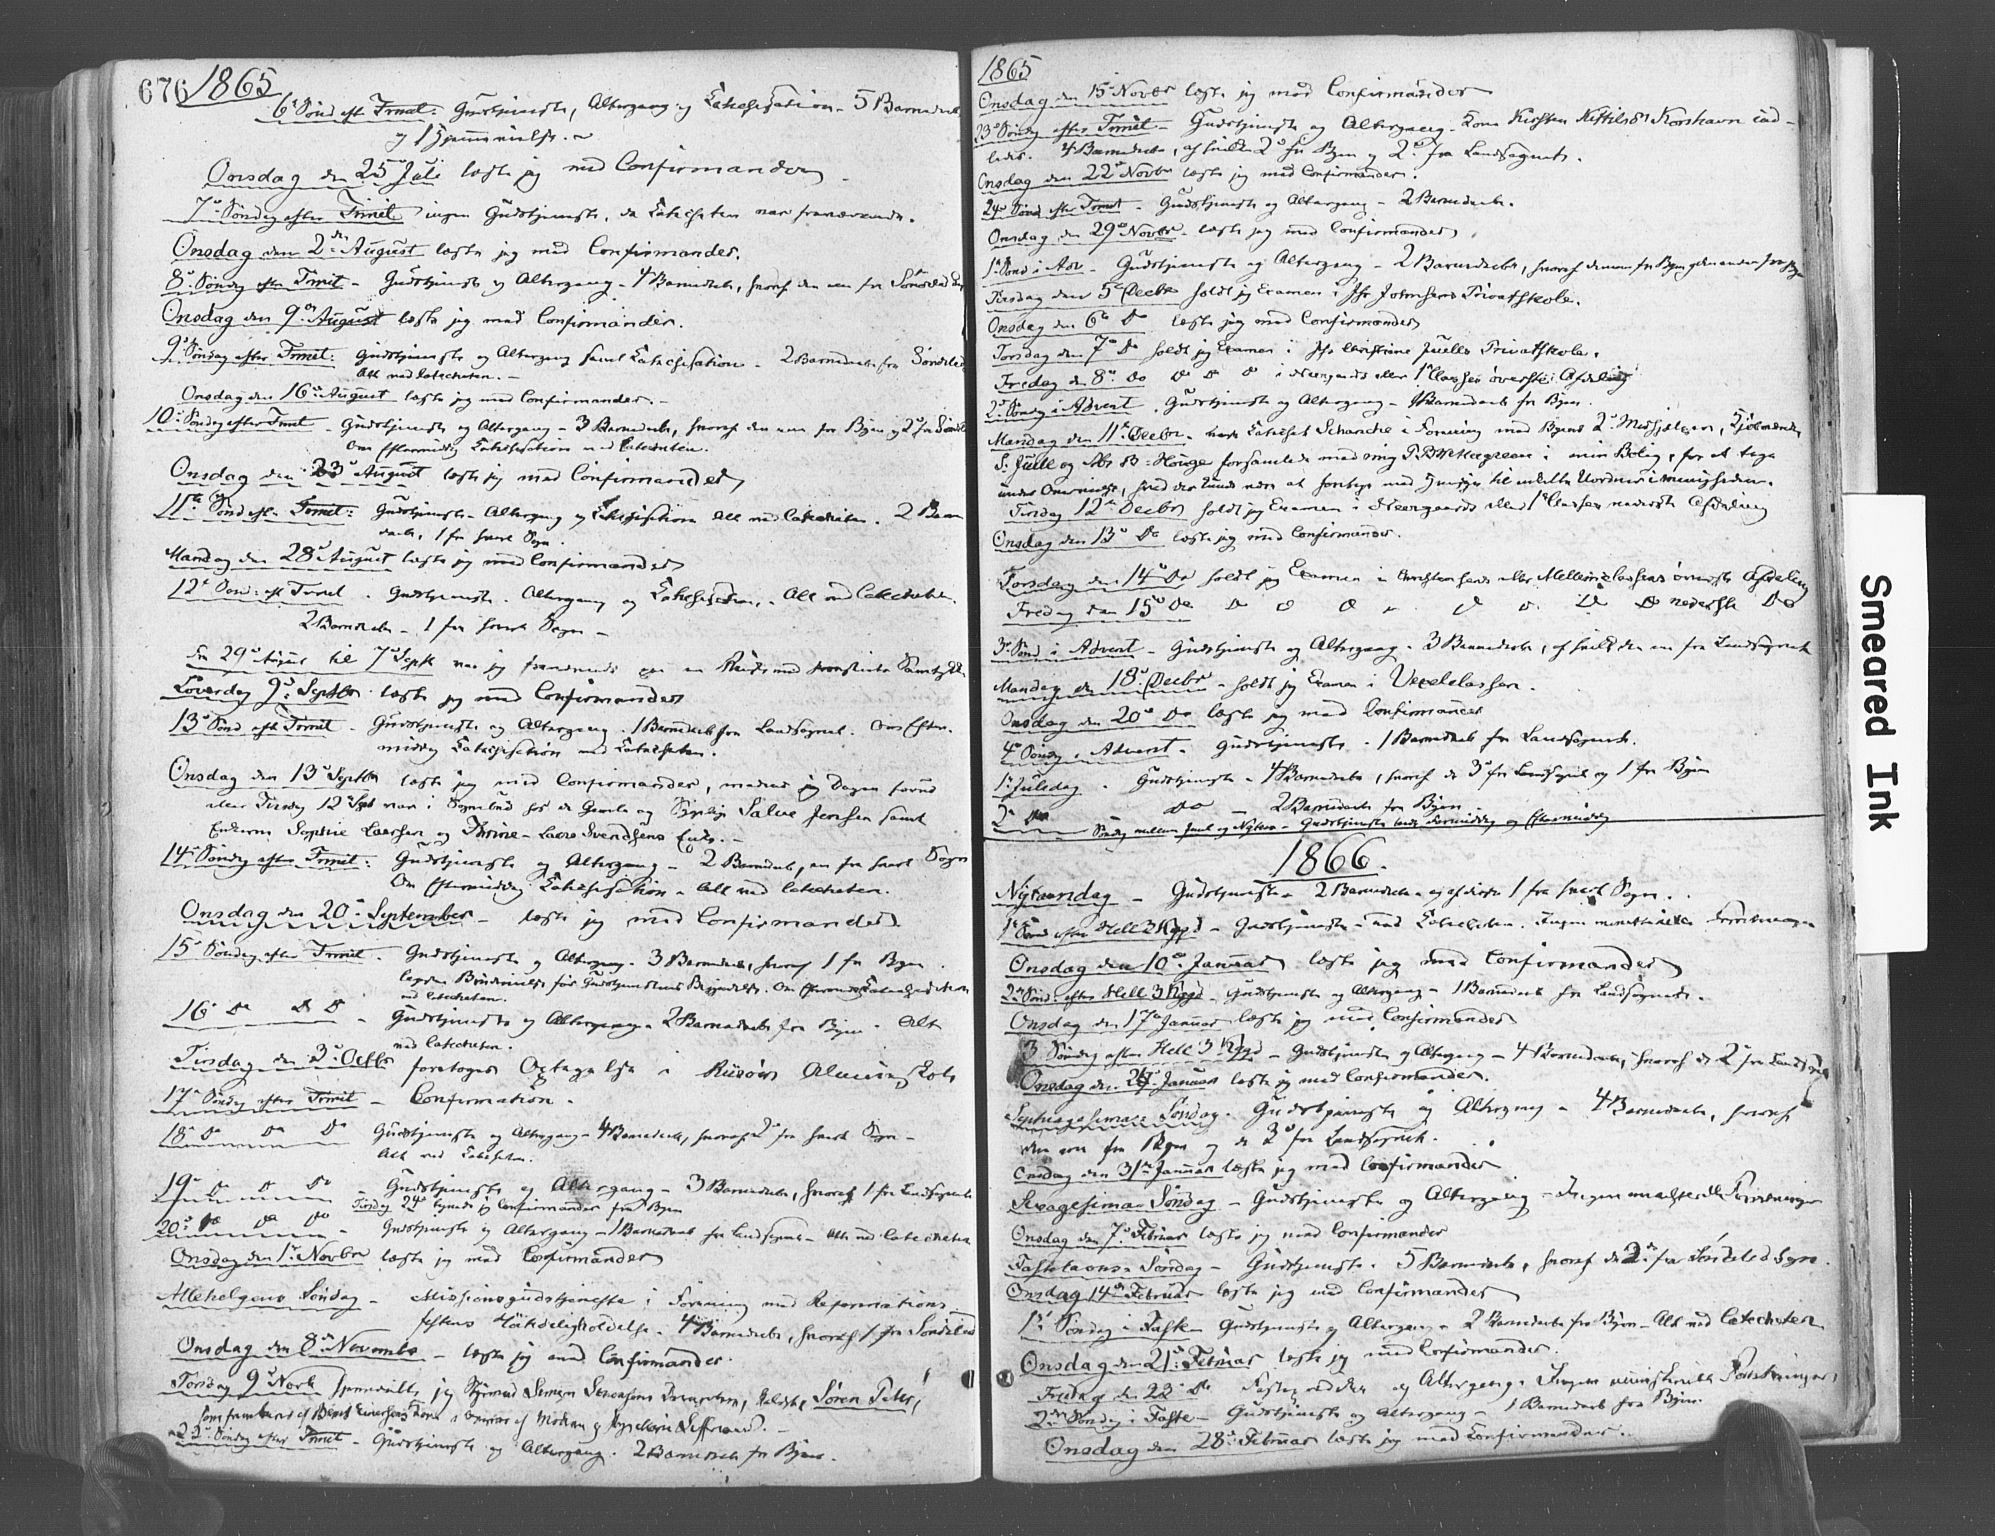 676 1865
6te Sönd. eft. Trinit: Gudstjeneste, Altergang og Katechisation - 5 Barnedaab
og 1
Onsdag den 25de Juli læste jeg med Confirmander
7de Söndag efter Trinit. ingen Gudstjeneste, da Katecheten var fraværende.
Onsdag den 2den August læste jeg med Confirmander.
8de Söndag efter Trinit - Gudstjeneste og Altergang - 4 Barnedaab, hvoraf den ene fra Söndeled
Onsdag den 9de August læste jeg med Confirmander.
9de Söndag efter Trinit: Gudstjeneste og Altergang samt Katechisation - 2 Barnedaab fra Söndeled
Alt ved Catecheten. -
Onsdag den 16de August læste jeg med Confirmander. -
10de Söndag efter Trinit - Gudstjeneste og Altergang - 3 Barnedaab, hvoraf den ene fra Byen og 2de fra Söndel
Om Eftermiddag Katechisation ved Catecheten.
Onsdag den 23de August læste jeg med Confirmander
11te Sönd. eft. Trinit: Gudstjeneste - Altergang og Katechisation Alt ved Catecheten. 2 Barne
daab, 1 fra hvert Sogn.
Mandag den 28de August læste jeg med Confirmander
12te Sönd. eft. Trinit. Gudstjeneste. Altergang og Katechisation. - Alt ved Catecheten.
2 Barnedaab - 1 fra hvert Sogn -
Fra 29de August til 7de Septb var jeg fraværende
Löverdag 9de Septbr læste jeg med Confirmander
13de Sönd. eft. Trinit - Gudstjeneste og Altergang. 1 Barnedaab fra Landsognet. Om Efter-
middag Katechisation ved Catecheten.
Onsdag den 13de Septbr læste jeg med Confirmander, medens jeg Dagen forud
eller Tirsdag 12te Septb var i Sognebud hos de Gamle og Salve Jensen samt
Enkerne Sophie Laersen og Thrine - Lars Svendsens Enke. -
14de Söndag efter Trinit: Gudstjeneste og Altergang - 2 Barnedaab, en fra hvert Sogn
Om Eftermiddag Katechisation - Alt ved Catecheten.
Onsdag den 20de September - læste jeg med Confirmander.
15de Söndag efter Trinit. Gudstjeneste og Altergang. 3 Barnedaab, hvoraf 1 fra Byen.
för Gudstjenestens Begyndelse. Om Eftermiddag
ved Catecheten.
16de Do Do Do - Gudstjeneste og Altergang - 2 Barnedaab fra Byen - Alt
ved Catecheten.
Tirsdag den 3de Octbr foretoges Optagelse i Risörs Almueskole
17de Söndag efter Trinit - Confirmation.
18de Do Do Do Gudstjeneste og Altergang - 4 Barnedaab, hvoraf 2de fra hvert Sogn -
Alt ved Catecheten.
19de Do Do Do - Gudstjeneste og Altergang - 3 Barnedaab, hvoraf 1 fra Landsognet
Tirsdag 24de Confirmander fra Byen
20de Do Do Do - Gudstjeneste og Altergang - 1 Barnedaab fra Landsognet - Alt ved Catecheten
Onsdag den 1ste Novbr læste jeg med Confirmander
Allehelgens Söndag - Missionsgudstjeneste i Forening med Reformations-
festens Höitideligholdelse. 4 Barnedaab, hvoraf 1 fra Söndeled
Onsdag den 8de November - læste jeg med Confirmander.
Torsdag 9de Novb jeg Sören Peter,
22de Söndag efter Trinit - Gudstjeneste og Altergang. 2 Barnedaab fra Byen.
1865
Onsdag den 15de Novbr læste jeg med Confirmander
23de Söndag efter Trinit - Gudstjeneste og Altergang - Kone Kirsten Korshavn ind-
ledet. 4 Barnedaab, af hvilke 2de fra Byen og 2de fra Landsognet.
Onsdag den 22de Novbr læste jeg med Confirmander.
24de Sönd. efter Trinit - Gudstjeneste og Altergang - 2 Barnedaab.
Onsdag den 29de Novbr - læste jeg med Confirmander
1ste Sönd. i Adv - Gudstjeneste og Altergang - 2 Barnedaab, hvoraf
Tirsdag den 5te Decbr holdt jeg Examen i Privatskole.
Onsdag den 6te Do læste jeg med Confirmander
Torsdag den 7de Do holdt jeg Examen i Christine Juells Privatskole.
Fredag d. 8de Do Do Do Do i Neergaards eller 1ste Classes överste Afdeling
2den Söndag i Advent. Gudstjeneste og Altergang - Barnedaab fra Byen.
Mandag den 11te Decbr. Catechet Schanche i Forening med Byens 2de Medhjelpere, Kjöbmænd
S. Juell og Houge forsamlede med mig i min Bolig, for at tage
under Overveielse, hvad der kunde være at foretage med Hensyn til
Tirsdag 12te Decbr holdt jeg Examen i Neergaards eller 1ste Classes nederste Afdeling
Onsdag den 13de Do læste jeg med Confirmander.
Torsdag den 14de Do holdt jeg Examen i Christensens eller Mellemclassens överste Afdeling
Fredag den 15de Do Do Do Do Do Do Do Do nederste Do
3de Sönd. i Advent - Gudstjeneste og Altergang - 3 Barnedaab, af hvilke den ene fra Landsognet
Mandag den 18de Decbr - holdt jeg Examen i Vexelclassen.
Onsdag den 20de Do læste jeg med Confirmander
4de Söndag i Advent - Gudstjeneste - 1 Barnedaab fra Landsognet.
1ste Juledag - Gudstjeneste - 4 Barnedaab, hvoraf de 3de fra Landsognet og 1 fra Byen
2den Do Do - 2 Barnedaab fra Byen
Söndag mellem Juul og Nytaar - Gudstjeneste baade Formiddag og Eftermiddag
1866.
Nytaarsdag - Gudstjeneste - 2 Barnedaab - og af disse 1 fra hvert Sogn.
1ste Sönd. efter Hell 3 Kgd - Gudstjeneste ved Catecheten. Ingen ministerielle Forretninger
Onsdag den 10de Januar læste jeg med Confirmander
2den Sönd. efter Hell 3 Kgd - Gudstjeneste og Altergang - 1 Barnedaab fra Landsognet.
Onsdag den 17de Januar læste jeg med Confirmander
3 Söndag efter Hell 3 Kgd - Gudstjeneste og Altergang - 4 Barnedaab, hvoraf de 2de fra Landsognet
Onsdag den 24de Januar læste jeg med Confirmander.
Septuagesimae Söndag. Gudstjeneste og Altergang - 4 Barnedaab, hvoraf
den ene fra Byen og de 3de fra Landsognet.
Onsdag den 31te Januar læste jeg med Confirmander
Sexagesimae Söndag - Gudstjeneste og Altergang - Ingen ministerielle Forretninger
Onsdag den 7de Februar læste jeg med Confirmander
Fastelavns Söndag - Gudstjeneste. 5 Barnedaab, hvoraf de 2de fra Söndeled Sogn.
Onsdag 14de Februar læste jeg med Confirmander
1ste Söndag i Faste Gudstjeneste og Altergang - 2 Barnedaab fra Byen - Alt ved Catecheten
Onsdag den 21de Februar læste jeg med Confirmander.
Fredag den 23de Do og Altergang - Ingen ministerielle Forretninger
2den Söndag i Faste - Gudstjeneste og Altergang - 1 Barnedaab fra Byen
Onsdag den 28de Februar læste jeg med Confirmander.
Smeared Ink